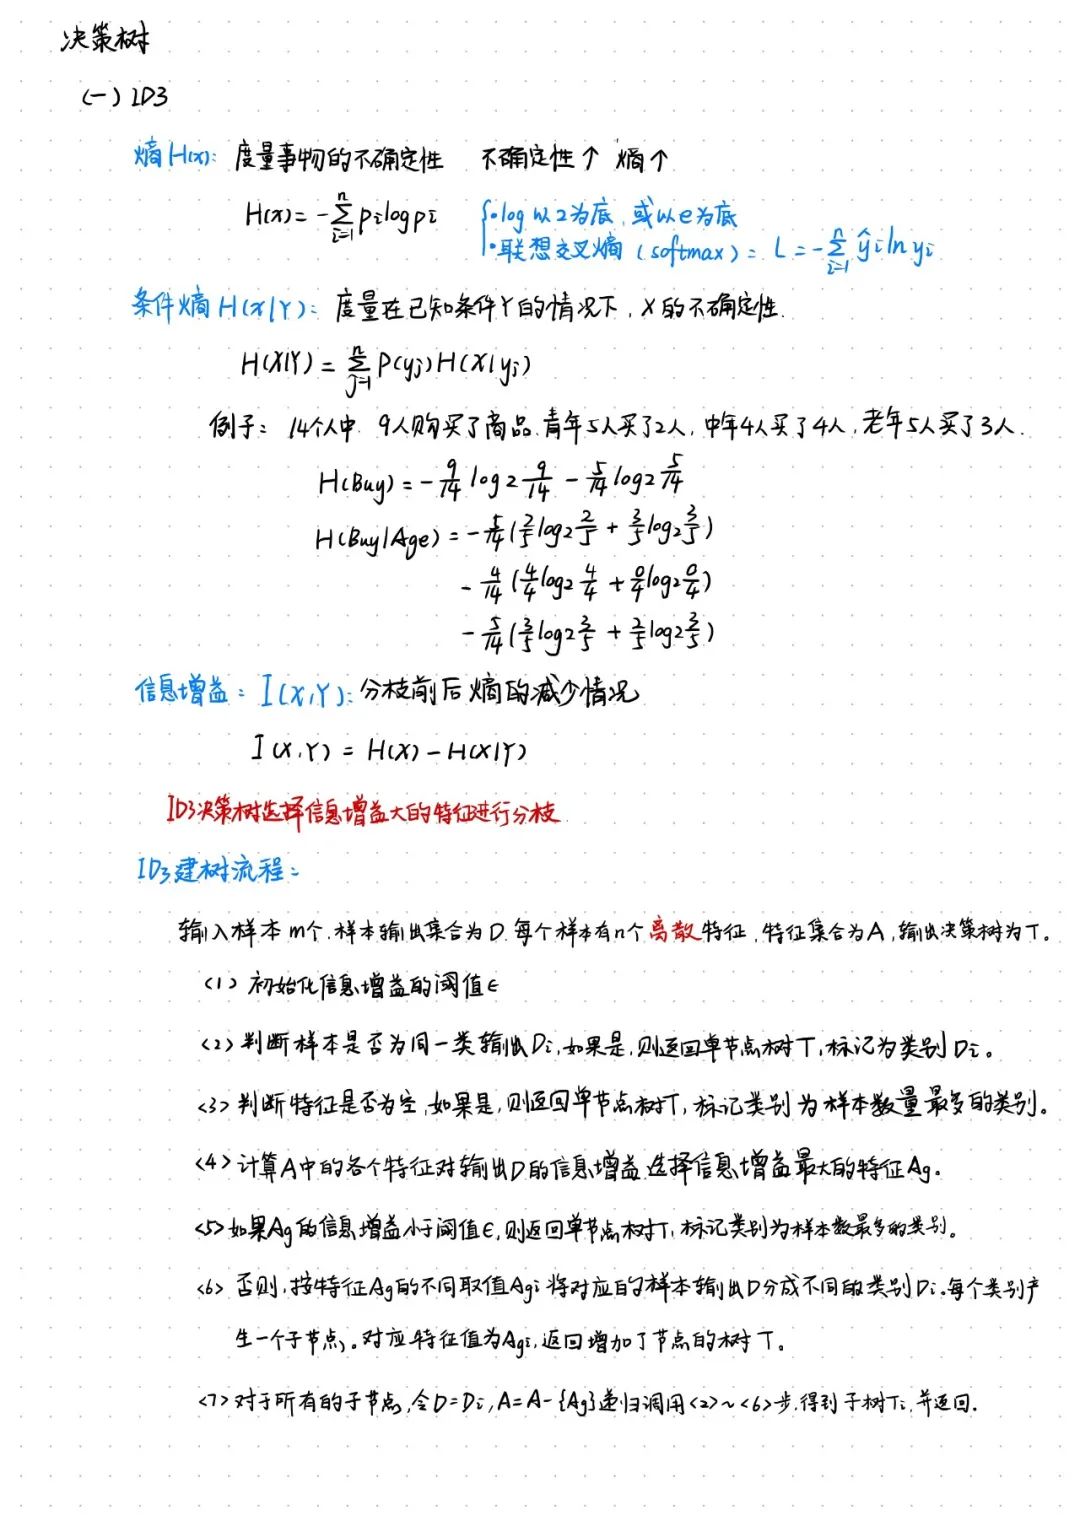 决策树
(一) ID3
熵H(x): 度量事物的不确定性 不确定性↑ 熵↑
H(x) = -∑_{i=1}^{n} pi log pi { · log 以2为底, 或以e为底
· 联想交叉熵 (softmax): L = -∑_{i=1}^{n} ŷi ln yi
条件熵 H(X|Y): 度量在已知条件Y的情况下, X的不确定性.
H(X|Y) = ∑_{j=1}^{n} P(yj) H(X|yj)
例子: 14个人中. 9人购买了商品. 青年5人买了2人, 中年4人买了4人, 老年5人买了3人.
H(Buy) = - 9/14 log2 9/14 - 5/14 log2 5/14
H(Buy|Age) = - 5/14 (2/5 log2 2/5 + 3/5 log2 3/5)
- 4/14 (4/4 log2 4/4 + 0/4 log2 0/4)
- 5/14 (3/5 log2 3/5 + 2/5 log2 3/5)
信息增益: I(X,Y): 分枝前后熵的减少情况
I(X,Y) = H(X) - H(X|Y)
ID3决策树选择信息增益大的特征进行分枝
ID3建树流程:
输入样本m个, 样本输出集合为D. 每个样本有n个离散特征, 特征集合为A, 输出决策树为T。
<1> 初始化信息增益的阈值ϵ
<2> 判断样本是否为同一类输出Di, 如果是, 则返回单节点树T, 标记为类别Di。
<3> 判断特征是否为空, 如果是, 则返回单节点树T, 标记类别为样本数量最多的类别。
<4> 计算A中的各个特征对输出D的信息增益, 选择信息增益最大的特征Ag。
<5> 如果Ag的信息增益小于阈值ϵ, 则返回单节点树T, 标记类别为样本数最多的类别。
<6> 否则, 按特征Ag的不同取值Agi将对应的样本输出D分成不同的类别Di。每个类别产
生一个子节点。对应特征值为Agi, 返回增加了节点的树T。
<7> 对于所有的子节点, 令D=Di, A=A-{Ag}递归调用<2>~<6>步, 得到子树Ti, 并返回.